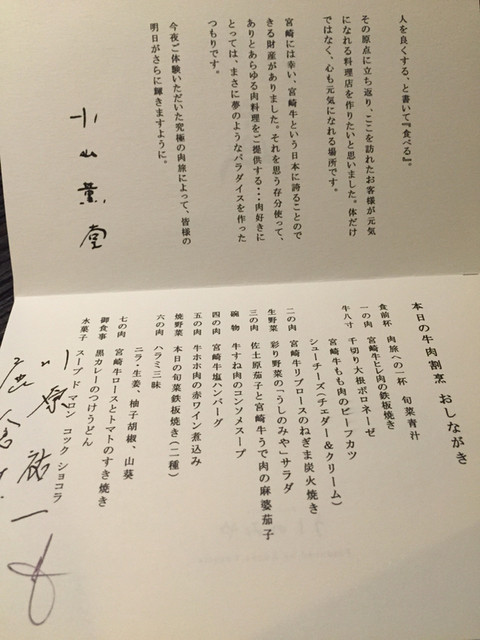 人を良くする、と書いて『食べる』。
その原点に立ち返り、ここを訪れたお客様が元気
になれる料理店を作りたいと思いました。体だけ
ではなく、心も元気になれる場所です。
宮崎には幸い、宮崎牛という日本に誇ることので
きる財産がありました。それを思う存分使って、
ありとあらゆる肉料理をご提供する・・・肉好きに
とっては、まさに夢のようなパラダイスを作った
つもりです。
今夜ご体験いただいた究極の肉旅によって、皆様の
明日がさらに輝きますように。
小山薫堂
本日の牛肉割烹 おしながき
食前杯 肉旅への一杯 旬菜青汁
一の肉 宮崎牛ヒレ肉の鉄板焼き
牛八寸 千切り大根ボロネーゼ
宮崎牛もも肉のビーフカツ
シューチーズ(チェダー&クリーム)
二の肉 宮崎牛リブロースのねぎま炭火焼き
生野菜 彩り野菜の「うしのみや」サラダ
三の肉 佐土原茄子と宮崎牛うで肉の麻婆茄子
碗物 牛すね肉のコンソメスープ
四の肉 宮崎牛塩ハンバーグ
五の肉 牛ホホ肉の赤ワイン煮込み
焼野菜 本日の旬菜鉄板焼き(二種)
六の肉 ハラミ三昧
ニラ・生姜、柚子胡椒、山葵
七の肉 宮崎牛ロースとトマトのすき焼き
御食事 黒カレーのつけうどん
水菓子 スープ ド マロン コック ショコラ